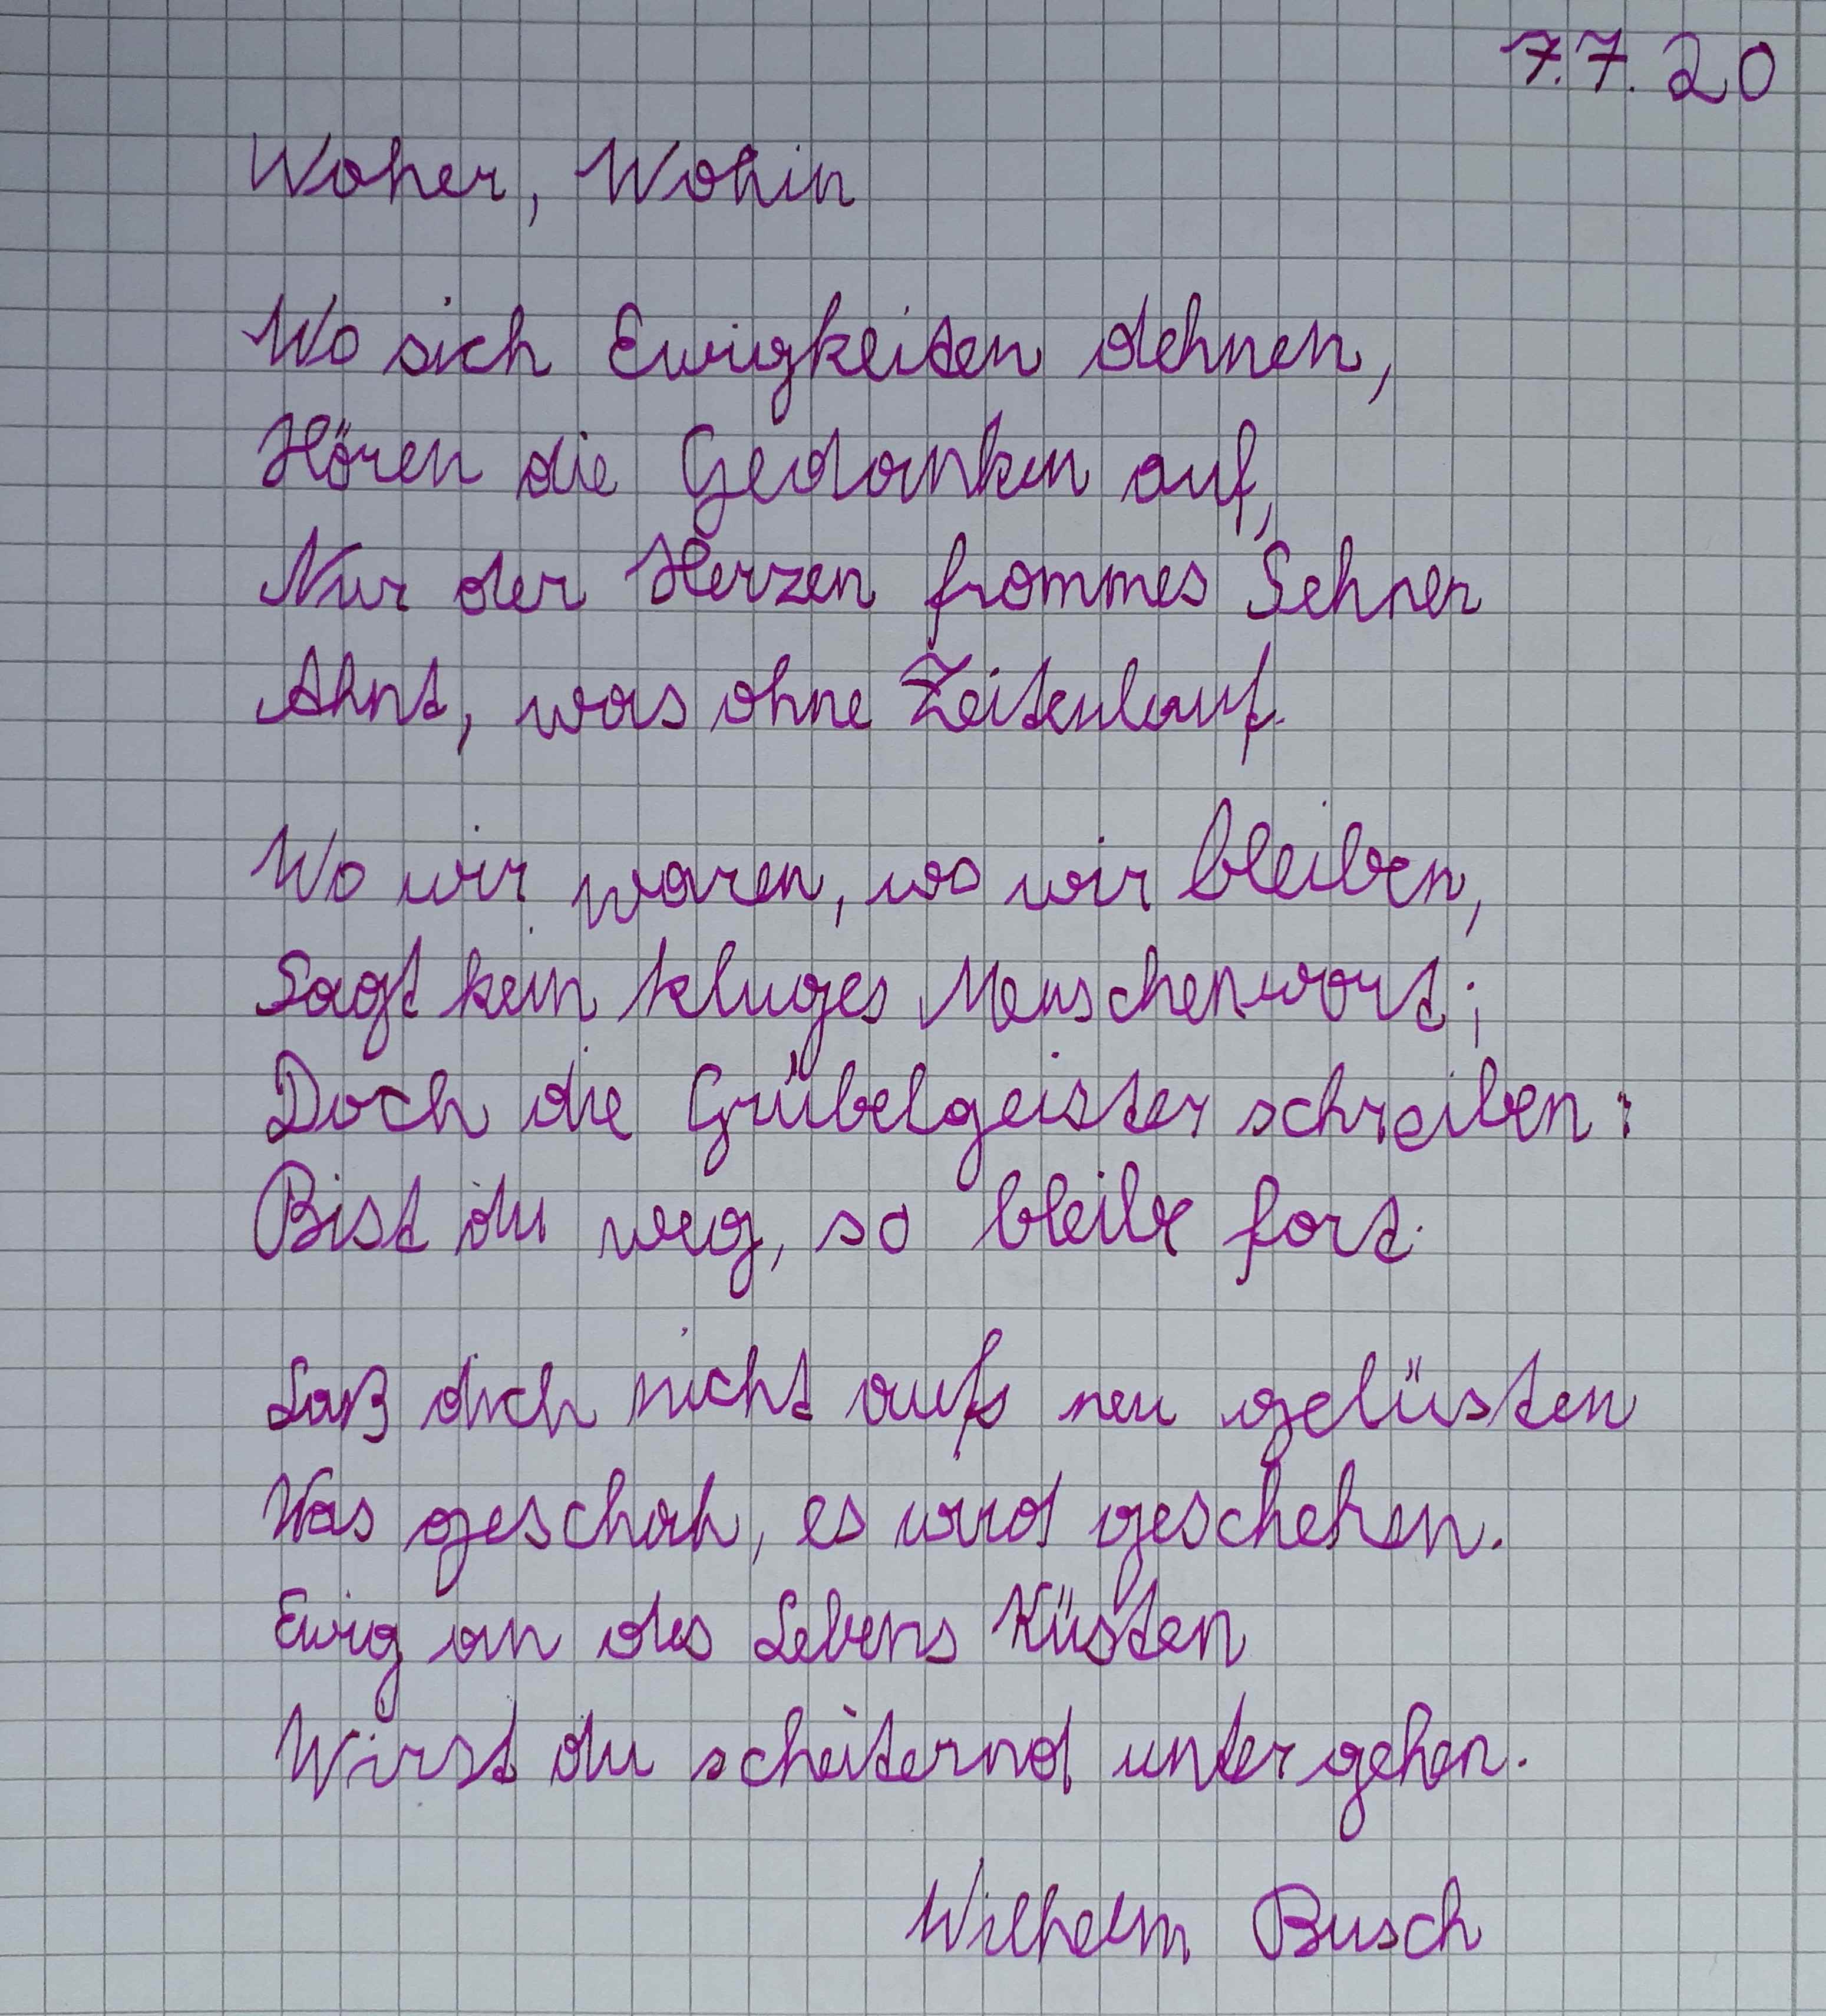 7.7.20
Woher, Wohin
Wo sich Ewigkeiten dehnen,
Hören die Gedanken auf,
Nur der Herzen frommes Sehnen
Ahnt, was ohne Zeitenlauf.
Wo wir waren, wo wir bleiben,
Sagt kein kluges Menschenwort;
Doch die Grübelgeister schreiben:
Bist du weg, so bleibe fort.
Laß dich nicht aufs neu gelüsten
Was geschah, es wird geschehen.
Ewig an des Lebens Küsten
Wirst du scheiternd untergehen.
Wilhelm Busch